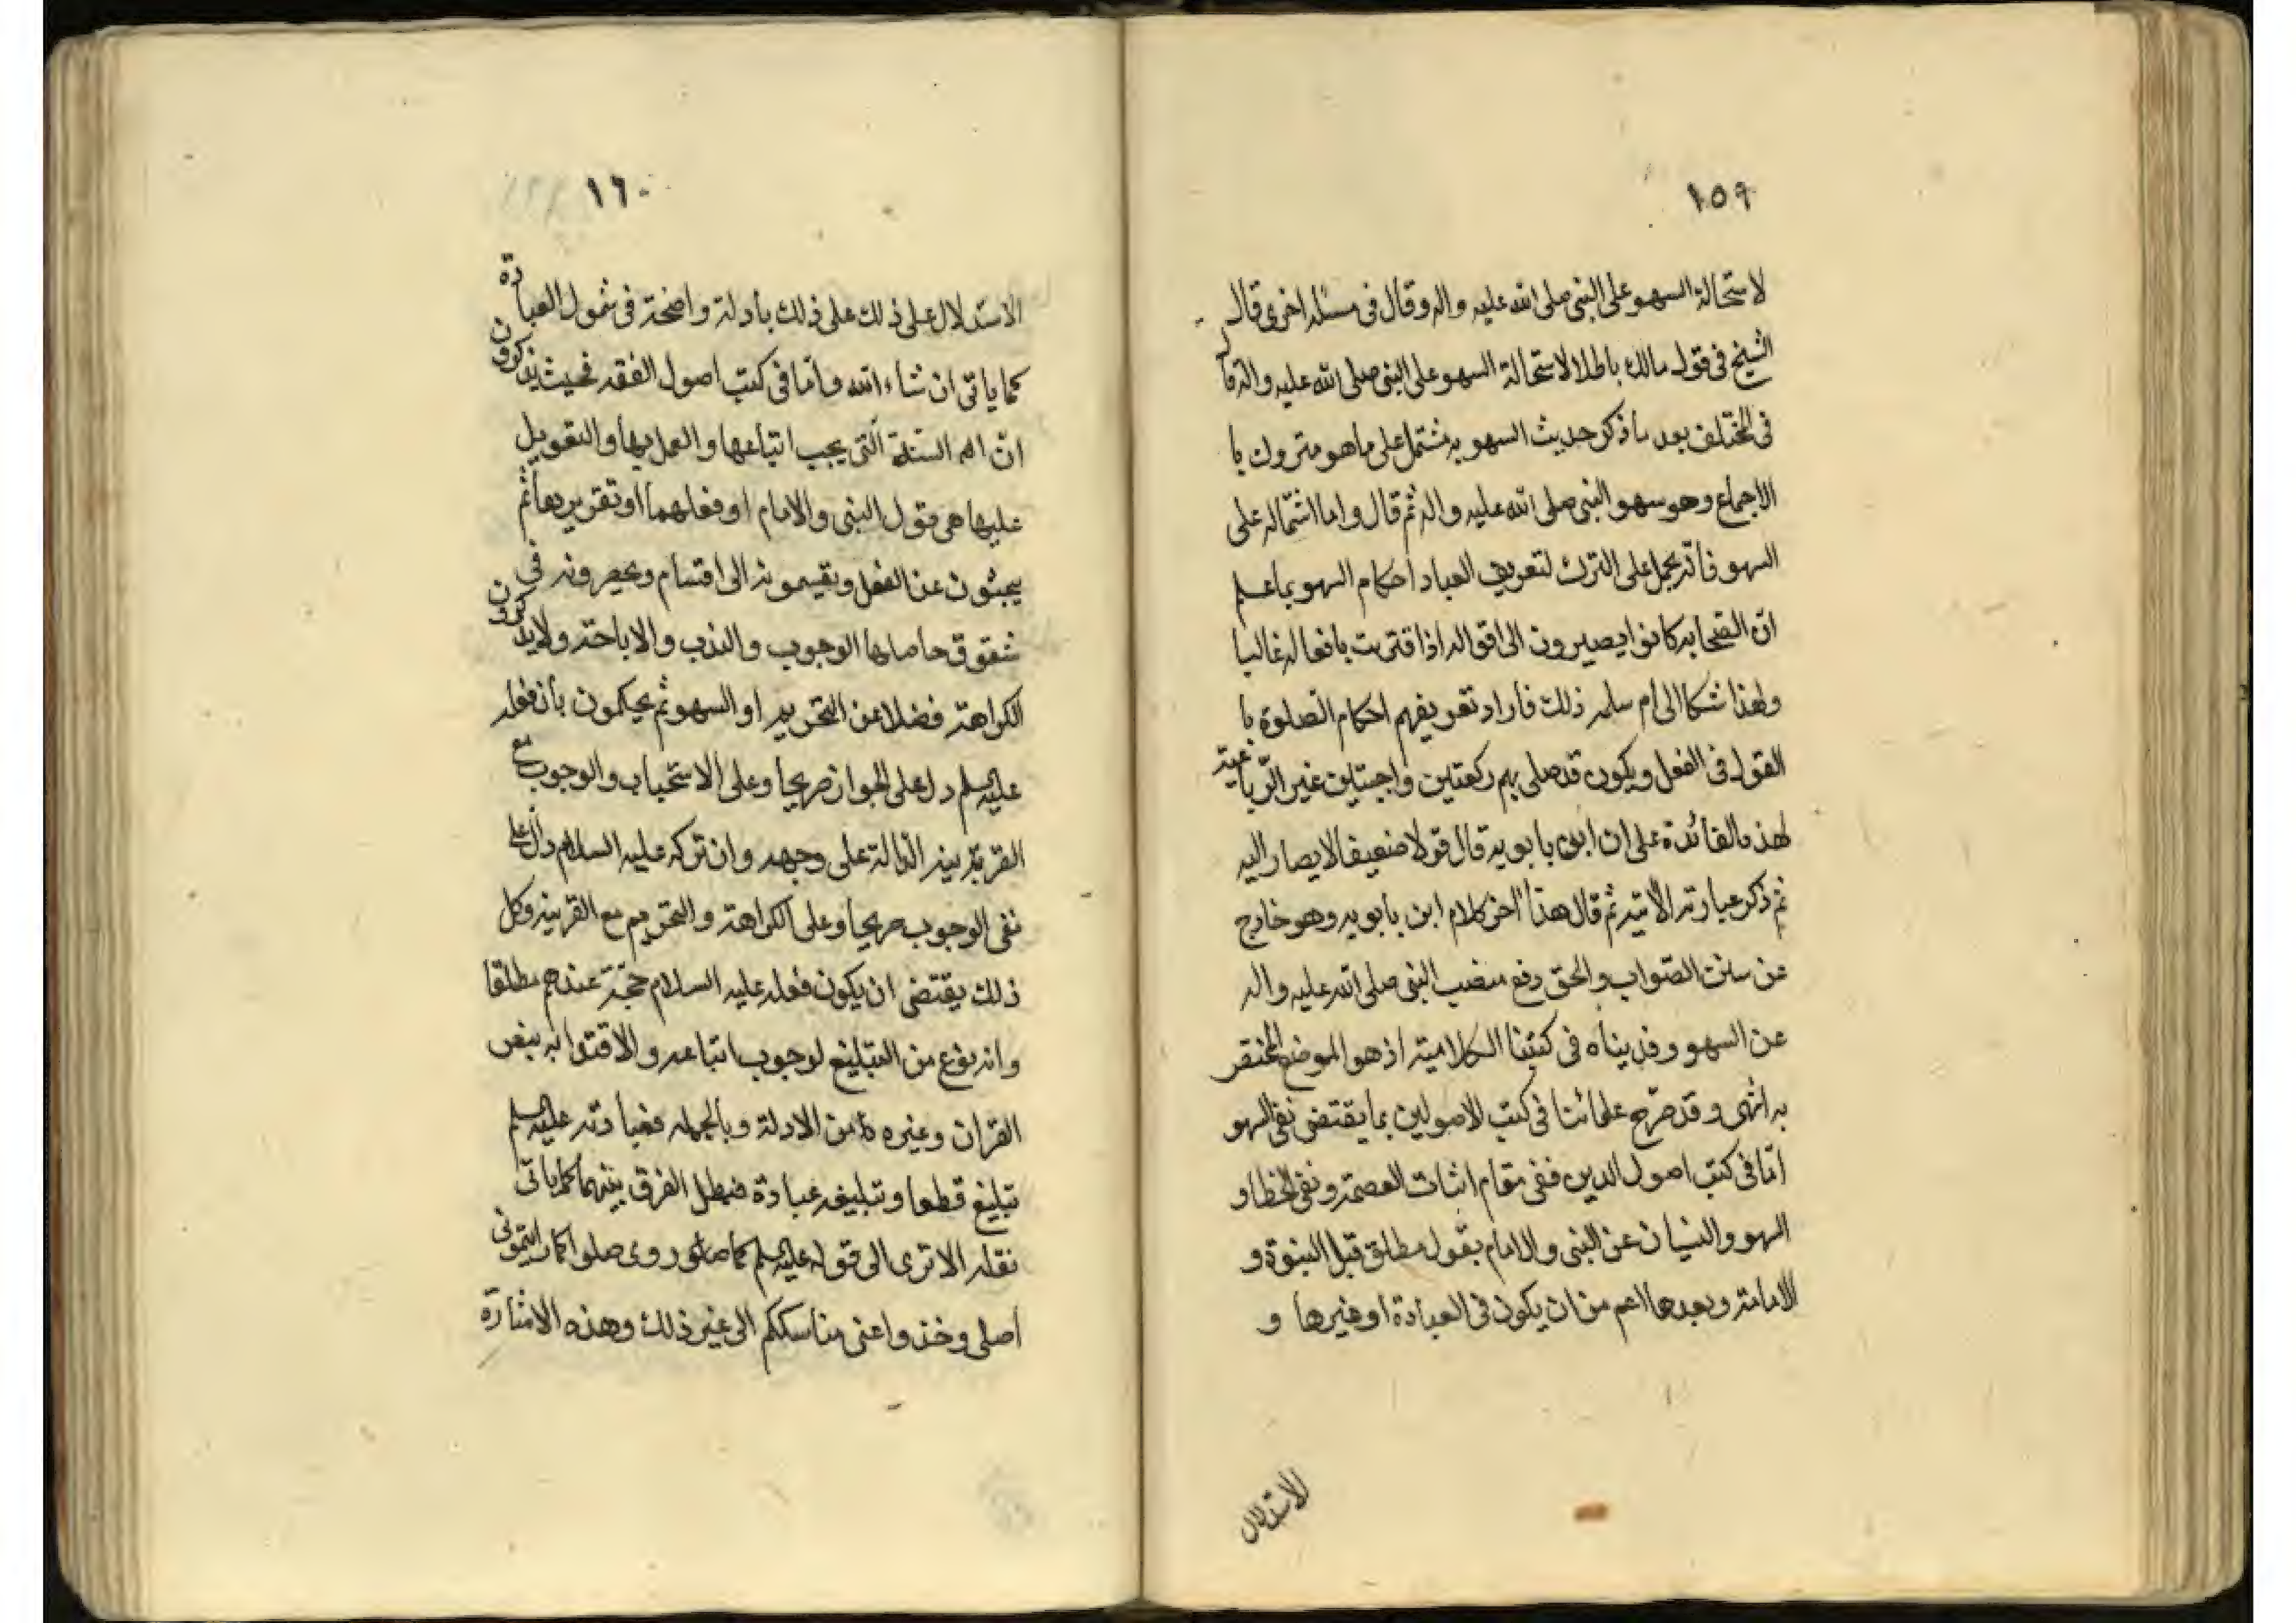 ١٥٩
لاستحالة السهو على النبى صلى الله عليه واله وقال فى مسئله اخرى قال
الشيخ فى قول مالك باطلا لاستحالة السهو على النبى صلى الله عليه واله وقال
فى المختلف بعد ما ذكر حديث السهو به مشتمل على ما هو متروك با
الاجماع وهو سهو النبى صلى الله عليه واله ثم قال واما اشتماله على
السهو فانه يحمل على الترك لتعريف العباد احكام السهو بما علم
انّ الصحابه كانوا يصيرون الى اقواله اذا اقترنت بافعاله غالبا
ولهذا شكا الى ام سلمه ذلك فاراد تعريفهم احكام الصلوة با
القول فى الفعل ويكون قد صلى بهم ركعتين واجبتين غير الرّباعية
لهذه الفائدة على ان ابن بابويه قال قولا ضعيفا لا يصار اليه
ثم ذكر عبارته الاتيه ثم قال هذا اخر كلام ابن بابويه وهو خارج
عن سنن الصّواب والحق رفع منصب النبى صلى الله عليه واله
عن السهو وقد بيناه فى كتبنا الكلاميّه اذ هو الموضع المختص
به انتهى وقد صرّح علمائنا فى كتب الاصولين بما يقتضى نفى السهو
امّا فى كتب اصول الدين ففى مقام اثبات العصمة ونفى الخطا و
السهو والنسيان عن النبى والامام بقول مطلق قبل النبوة و
الامامة وبعدها اعم من ان يكون فى العبادة او غيرها و
الاستدلال
١٦٠
الاستدلال على ذلك على ذلك بأدلة واضحة فى شمول العبادة
كما ياتى ان شاء الله وامّا فى كتب اصول الفقه فحيث يذكرون
انّ السنّة الّتى يجب اتباعها والعمل بها والتعويل
عليها هى قول النبى والامام او فعلهما او تقريرهما ثم
يبحثون عن الفعل ويقسمونه الى اقسام ويحصرونه فى
شقوق حاصلها الوجوب والندب والاباحة ولا يذكرون
الكراهة فضلا عن التحريم او السهو ثم يحكمون بأن فعله
عليه السلم دل على الجواز صريحا وعلى الاستحباب والوجوب مع
القرينة الدّالة على وجهه وان تركه عليه السلام دالّ على
نفى الوجوب صريحا وعلى الكراهة والتحريم مع القرينه وكل
ذلك يقتضى ان يكون فعله عليه السلام حجّة عندهم مطلقا
وانه نوع من التبليغ لوجوب اتباعه والاقتداء به بنص
القران وغيره من الادلة وبالجمله فعبادته عليه السلم
تبليغ قطعا وتبليغه عبادة فبطل الفرق بينهما كما ياتى
نقله الا ترى الى قوله عليه السلم صلوا كما رايتمونى
اصلى وخذوا عنى مناسككم الى غير ذلك وهذه الاشارة